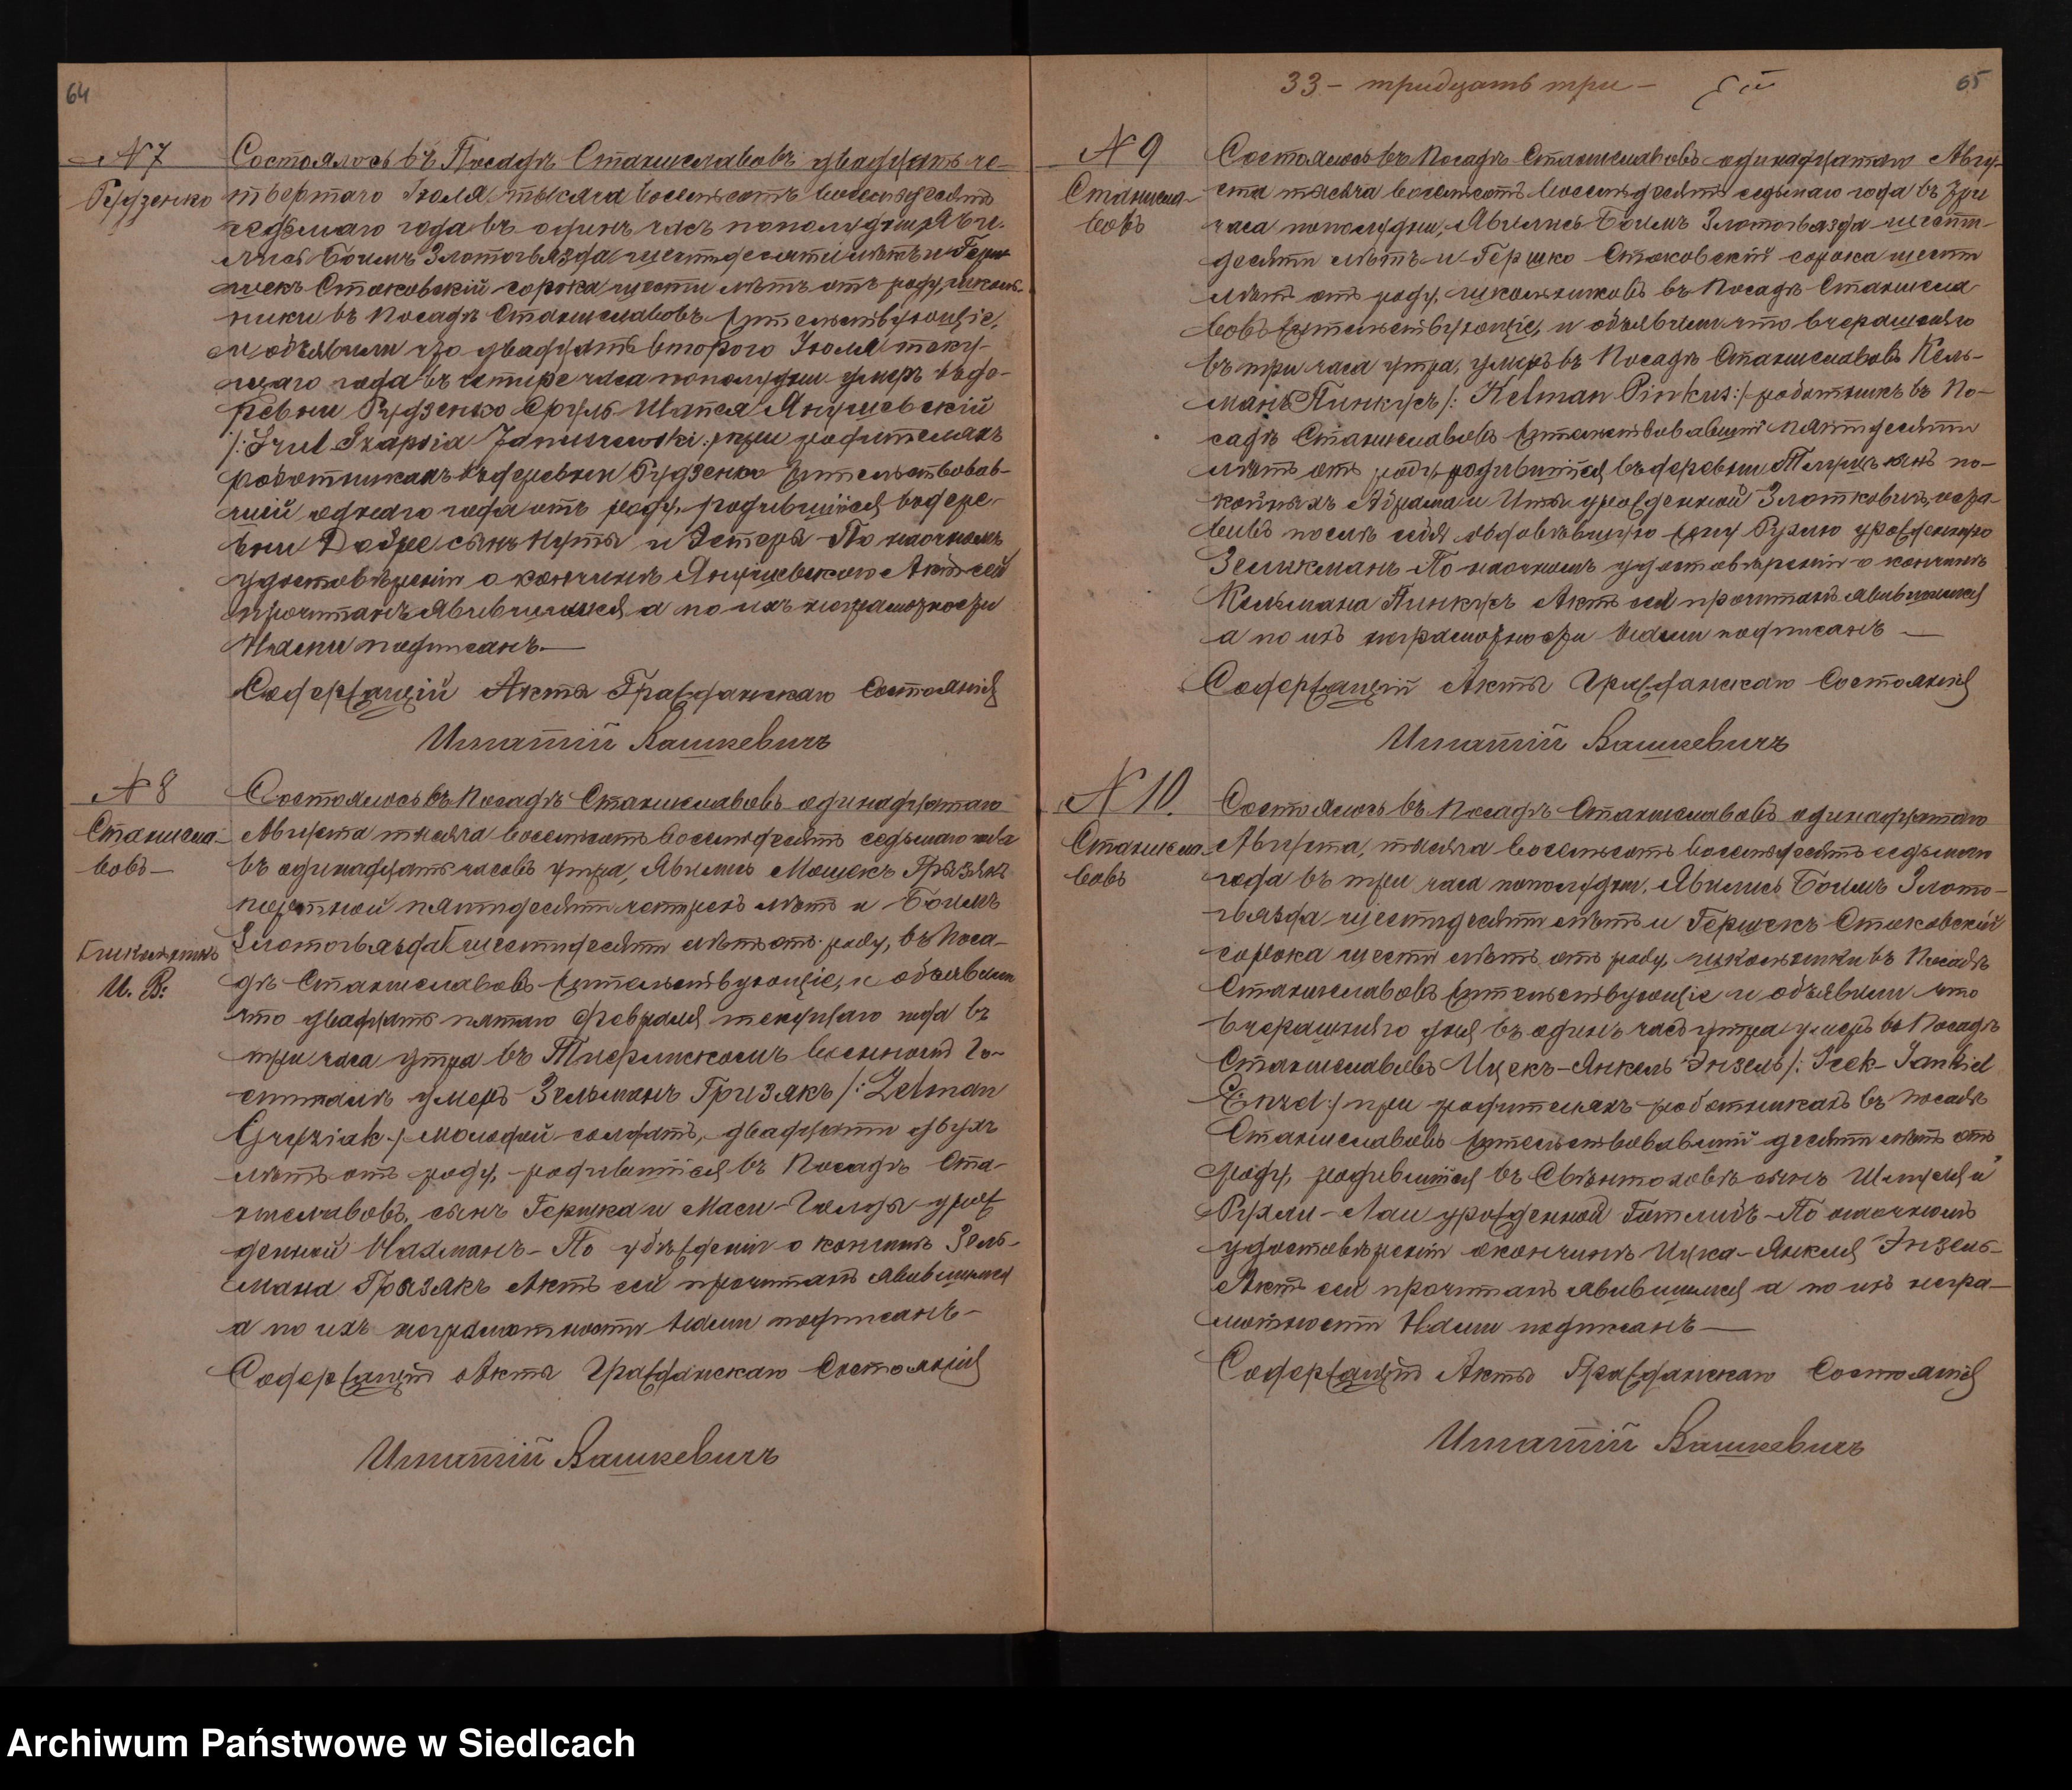 64
N 7
Рудзенко
Состоялось въ Посадѣ Станиславовѣ двадцать че-
твертаго Іюля, тысяча восемьсотъ восемьдесятъ
седьмаго года въ одинъ часъ пополудни, Яви-
лись Боимъ Злотогвязда шестидесяти лѣтъ и Гер-
шекъ Стаковскій сорока шести лѣтъ отъ роду, школь-
ники въ Посадѣ Станиславовѣ жительствующіе,
и объявили что двадцать втораго Іюля теку-
щаго года въ четыре часа пополудни умеръ въ де-
ревни Рудзенко Сруль Шапся Янушевскій
/: Srul Szapsia Januszewski :/ при родителяхъ
работникахъ въ деревни Рудзенко жительствовав-
шій одного года отъ роду, родившійся въ дере-
вни Добре сынъ Нуты и Эстеры По наочномъ
удостовѣреніи о кончинѣ Янушевскаго Актъ сей
прочитанъ явившимся а по ихъ неграмотности
Нами подписанъ.—
Содержащій Акты Гражданскаго Состоянія
Игнатій Вашкевичъ
N 8
Станисла-
вовъ—
Состоялось въ Посадѣ Станиславовѣ одинадцатаго
Августа тысяча восемьсотъ восемьдесятъ седьмаго года
въ одинадцать часовъ утра, Явились Мошекъ Грызякъ
пятидесяти четырехъ лѣтъ и Боимъ
Злотогвязда шестидесяти лѣтъ отъ роду, въ Поса-
дѣ Станиславовѣ жительствующіе, и объявили
что двадцать пятаго Февраля текущаго года въ
три часа утра въ военномъ Го-
спиталѣ умеръ Зельманъ Грызякъ /: Zelman
Gryziak :/ молодой солдатъ, двадцати двухъ
лѣтъ отъ роду, родившійся въ Посадѣ Ста-
ниславовѣ, сынъ Гершка и Маси-Голды урож-
денной Нахманъ – По убѣжденіи о кончинѣ Зель-
мана Грызякъ Актъ сей прочитанъ явившимся
а по ихъ неграмотности Нами подписанъ –
Содержащій Акты Гражданскаго Состоянія
Игнатій Вашкевичъ
школьникъ
И. В:
33 – тридцать три –
65
N 9
Станисла-
вовъ
Состоялось въ Посадѣ Станиславовѣ одинадцатаго Авгу-
ста тысяча восемьсотъ восемьдесятъ седьмаго года въ три
часа пополудни, Явились Боимъ Злотогвязда шести-
десяти лѣтъ и Гершко Стаковскій сорока шести
лѣтъ отъ роду, школьниковъ въ Посадѣ Станисла-
вовѣ жительствующіе, и объявили что вчерашняго
въ три часа утра, умеръ въ Посадѣ Станиславовѣ Кель-
манъ Пинкусъ /: Kelman Pinkus :/ работникъ въ По-
садѣ Станиславовѣ жительствовавшій пятидесяти
лѣтъ отъ роду, родившійся въ деревни сынъ по-
койныхъ Абрама и Иты урожденной Злотковичъ, оста-
вивъ послѣ себя овдовѣвшую жену Рузлю урожденную
Зеликманъ – По наочномъ удостовѣреніи о кончинѣ
Кельмана Пинкусъ Актъ сей прочитанъ явившимся
а по ихъ неграмотности Нами подписанъ —
Содержащій Акты Гражданскаго Состоянія
Игнатій Вашкевичъ
N 10.
Станисла-
вовъ
Состоялось въ Посадѣ Станиславовѣ одинадцатаго
Августа, тысяча восемьсотъ восемьдесятъ седьмаго
года въ три часа пополудни, Явились Боимъ Злото-
гвязда шестидесяти лѣтъ и Гершекъ Стаковскій
сорока шести лѣтъ отъ роду, школьники въ Посадѣ
Станиславовѣ жительствующіе и объявили что
вчерашняго дня въ одинъ часъ утра умеръ въ Посадѣ
Станиславовѣ Ицекъ-Янкель Энзель /: Icek-Jankiel
Enzel :/ при родителяхъ работникахъ въ Посадѣ
Станиславовѣ жительствовавшій десяти лѣтъ отъ
роду, родившійся въ сынъ Шмуля и
Рухли-Лаи урожденной Готлибъ – По наочномъ
удостовѣреніи о кончинѣ Ицка-Янкеля Энзель –
Актъ сей прочитанъ явившимся а по ихъ негра-
мотности Нами подписанъ —
Содержащій Акты Гражданскаго Состоянія
Игнатій Вашкевичъ
Archiwum Państwowe w Siedlcach